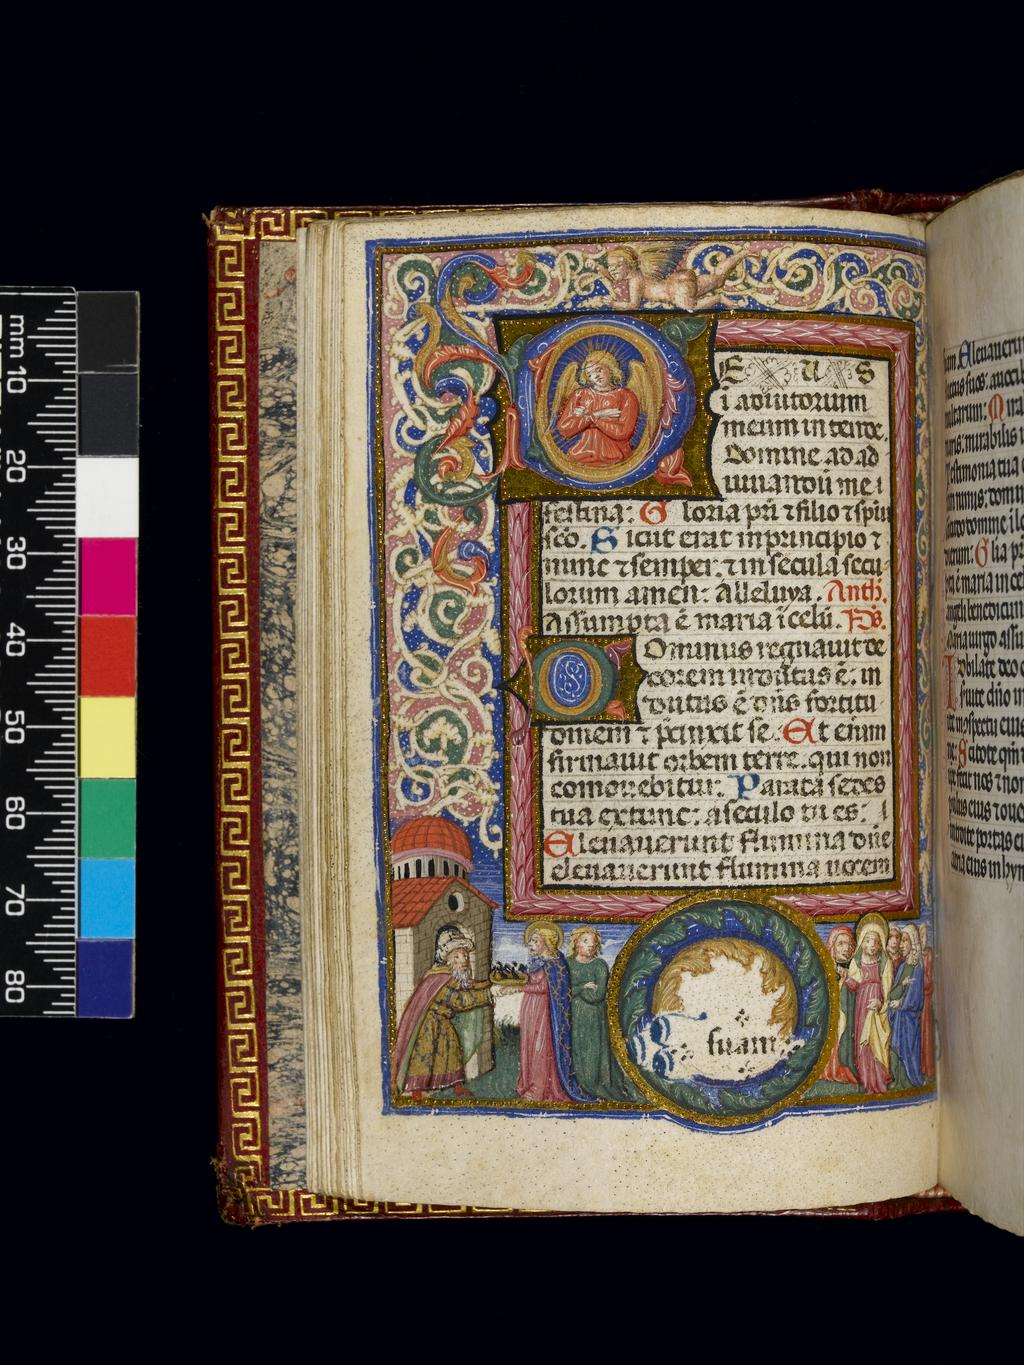 mm 10 20 30 40 50 60 70 80
D E U S
i adiutorium
meum intende.
Domine ad ad
iuuandū me
festina: Gloria pr̄i ⁊ filio ⁊ spiu
sc̄o. Sicut erat in principio ⁊
nunc ⁊ semper: ⁊ in secula secu
lorum amen: Alleluya. Anth̄.
Assumpta ē maria ī celū. P̄s.
Dominus regnauit de
corem indutus ē: in
dutus ē dn̄s fortitu
dinem ⁊ p̄cinxit se. Et enim
firmauit orbem terre: qui non
comouebitur: Parata sedes
tua extunc: a seculo tu es:
Eleuauerunt flumina dn̄e
eleuauerunt flumina uocem
suam:
um Eleuauerunt
fluctus suos: a uocib
multarum: Mira
maris: mirabilis i
Testimonia tua c
in domine i lo
dierum: Glia p̄r
ta ē maria in cel
angeli benedicunt
Maria uirgo assu
Iubilate deo o
seruite dn̄o in
te in cōspectu eius
ne: Scitote qm̄ d
ipse fecit nos ⁊ non
pulus eius ⁊ oues
introite portas ei
atria eius in hym